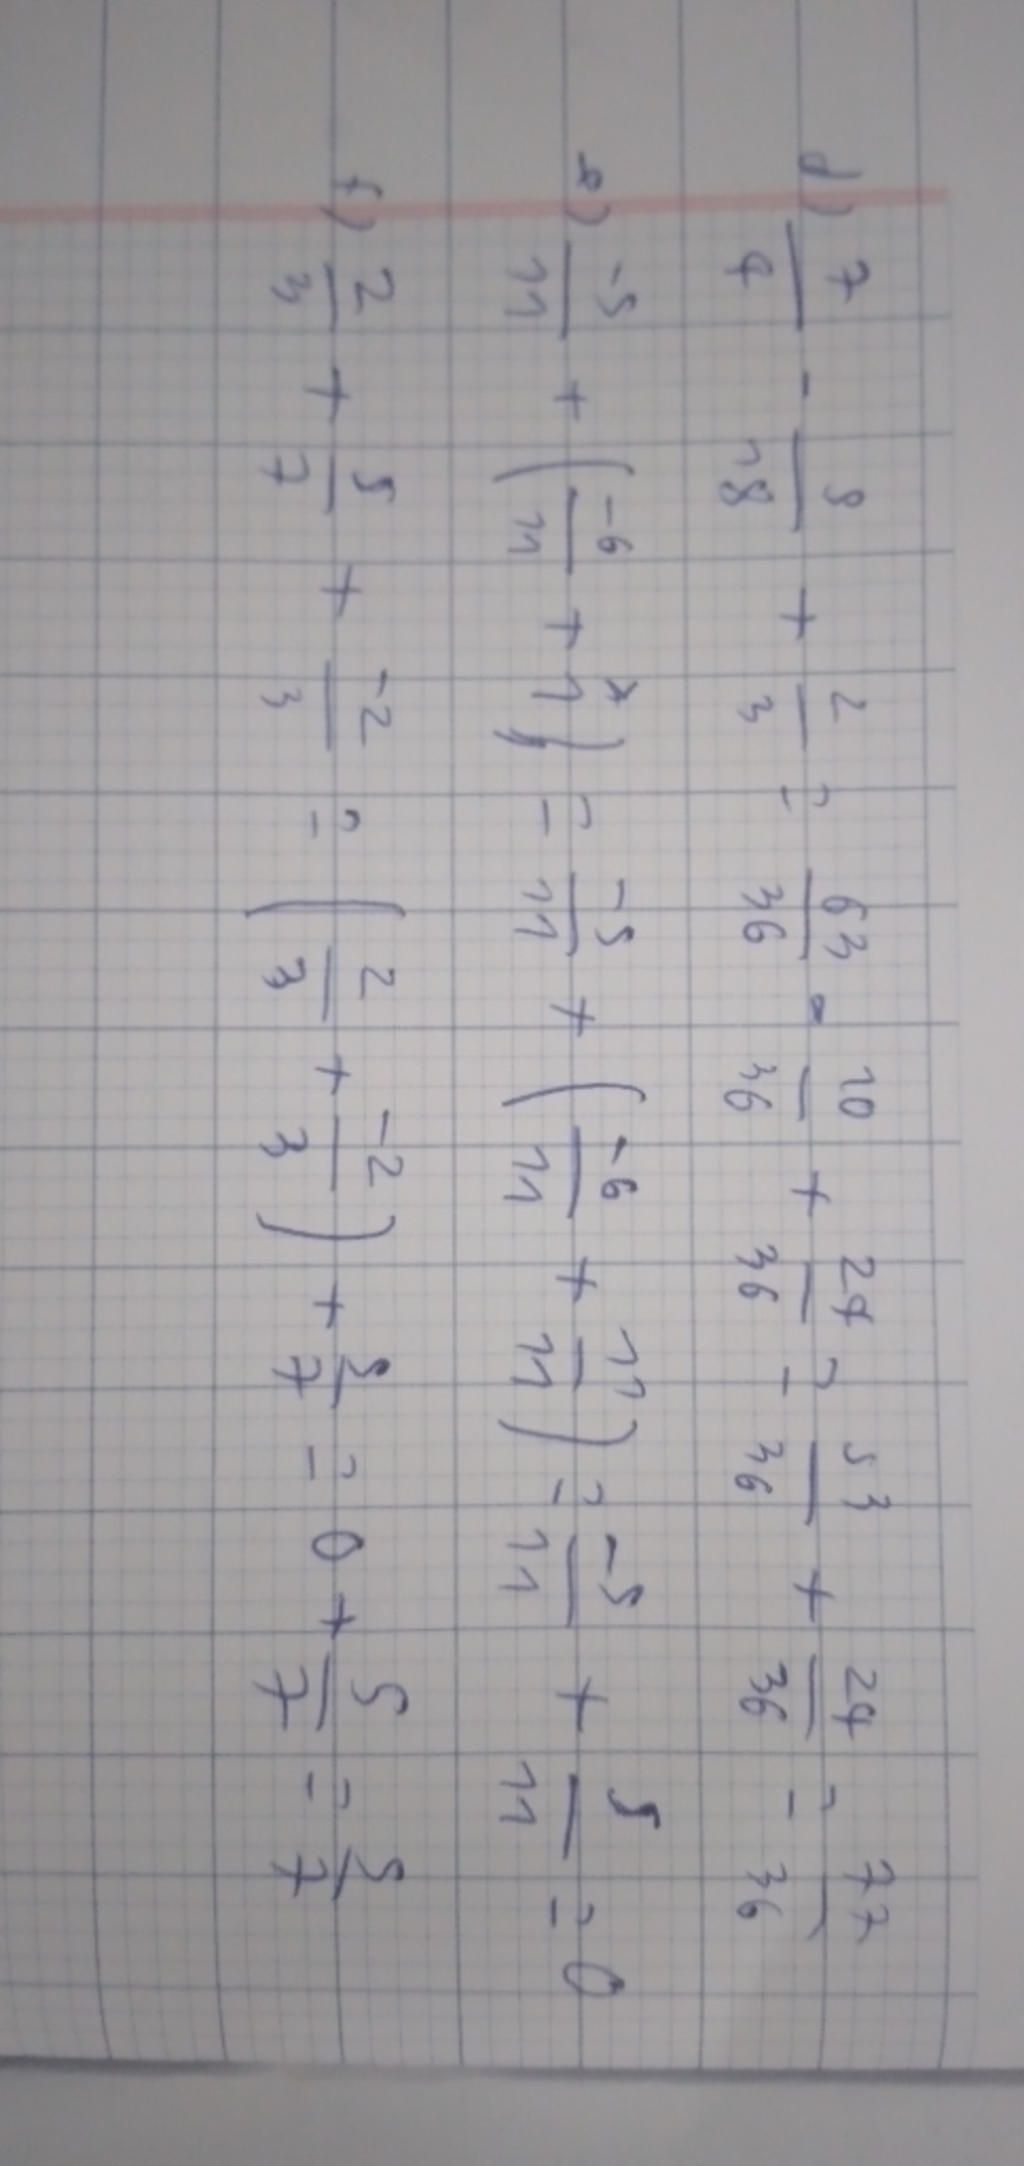 d) 7/4 - 5/18 + 2/3 = 63/36 - 10/36 + 24/36 = 53/36 + 24/36 = 77/36
e) -5/11 + (-6/11 + 1) = -5/11 + (-6/11 + 11/11) = -5/11 + 5/11 = 0
f) 2/3 + 5/7 + -2/3 = (2/3 + -2/3) + 5/7 = 0 + 5/7 = 5/7